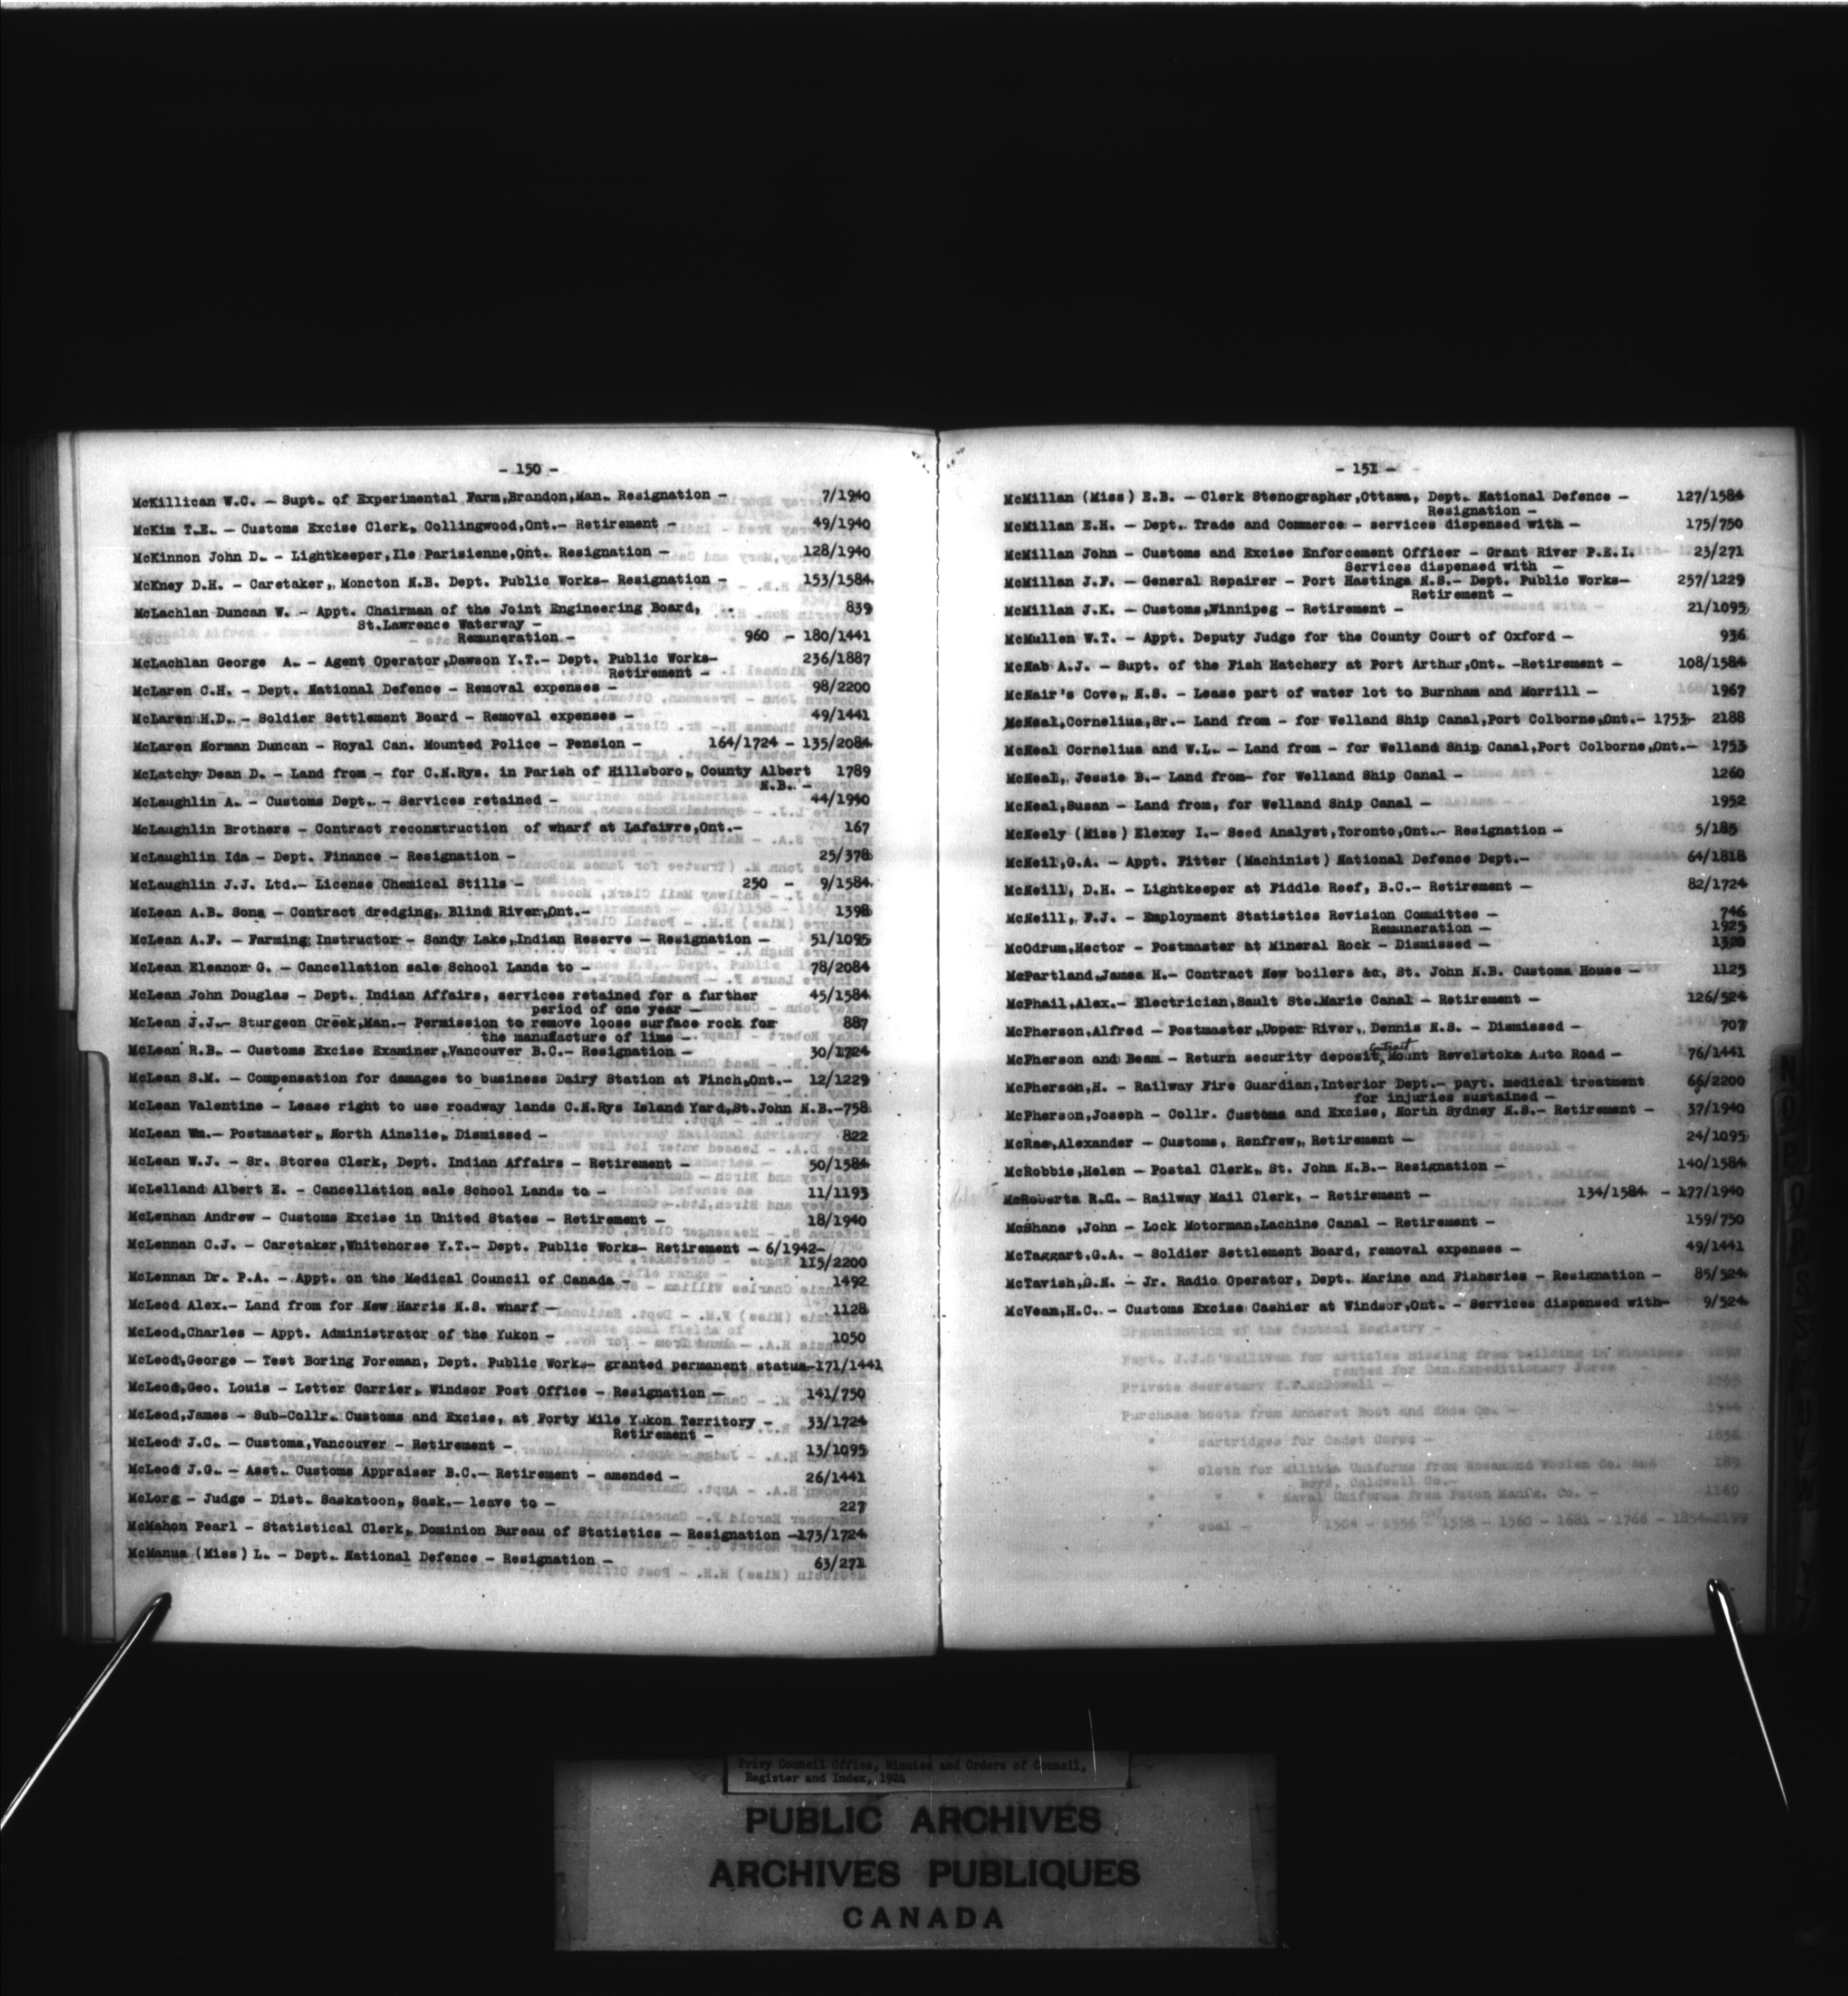 - 150 -
McKillican W.C. - Supt. of Experimental Farm,Brandon,Man. Resignation - 7/1940
McKim T.E. - Customs Excise Clerk, Collingwood,Ont.- Retirement - 49/1940
McKinnon John D. - Lightkeeper,Ile Parisienne,Ont. Resignation - 128/1940
McKney D.H. - Caretaker, Moncton N.B. Dept. Public Works- Resignation - 153/1584
McLachlan Duncan W. - Appt. Chairman of the Joint Engineering Board, 839
St.Lawrence Waterway -
Remuneration - 960 - 180/1441
McLachlan George A. - Agent Operator,Dawson Y.T.- Dept. Public Works- 236/1887
Retirement -
McLaren C.H. - Dept. National Defence - Removal expenses - 98/2200
McLaren H.D. - Soldier Settlement Board - Removal expenses - 49/1441
McLaren Norman Duncan - Royal Can. Mounted Police - Pension - 164/1724 - 135/2084
McLatchy Dean D. - Land from - for C.N.Rys. in Parish of Hillsboro, County Albert 1789
N.B. -
McLaughlin A. - Customs Dept. - Services retained - 44/1940
McLaughlin Brothers - Contract reconstruction of wharf at Lafaivre,Ont.- 167
McLaughlin Ida - Dept. Finance - Resignation - 25/378
McLaughlin J.J. Ltd.- License Chemical Stills - 250 - 9/1584
McLean A.B. Sons - Contract dredging, Blind River,Ont.- 1398
McLean A.F. - Farming Instructor - Sandy Lake,Indian Reserve - Resignation - 51/1095
McLean Eleanor G. - Cancellation sale School Lands to - 78/2084
McLean John Douglas - Dept. Indian Affairs, services retained for a further 45/1584
period of one year -
McLean J.J.- Sturgeon Creek,Man.- Permission to remove loose surface rock for 887
the manufacture of lime -
McLean R.B. - Customs Excise Examiner,Vancouver B.C.- Resignation - 30/1724
McLean S.M. - Compensation for damages to business Dairy Station at Finch,Ont.- 12/1229
McLean Valentine - Lease right to use roadway lands C.N.Rys Island Yard,St.John N.B.-758
McLean Wm.- Postmaster, North Ainslie, Dismissed - 822
McLean W.J. - Sr. Stores Clerk, Dept. Indian Affairs - Retirement - 50/1584
McLelland Albert E. - Cancellation sale School Lands to - 11/1193
McLenhan Andrew - Customs Excise in United States - Retirement - 18/1940
McLennan C.J. - Caretaker,Whitehorse Y.T.- Dept. Public Works- Retirement - 6/1942-
115/2200
McLennan Dr. P.A. - Appt. on the Medical Council of Canada - 1492
McLeod Alex.- Land from for New Harris N.S. wharf - 1128
McLeod,Charles - Appt. Administrator of the Yukon - 1050
McLeod,George - Test Boring Foreman, Dept. Public Works- granted permanent status-171/1441
McLeod,Geo. Louis - Letter Carrier, Windsor Post Office - Resignation - 141/750
McLeod,James - Sub-Collr. Customs and Excise, at Forty Mile Yukon Territory - 33/1724
Retirement -
McLeod J.C. - Customs,Vancouver - Retirement - 13/1095
McLeod J.G. - Asst. Customs Appraiser B.C.- Retirement - amended - 26/1441
McLorg - Judge - Dist. Saskatoon, Sask.- leave to - 227
McMahon Pearl - Statistical Clerk, Dominion Bureau of Statistics - Resignation -173/1724
McManus (Miss) L. - Dept. National Defence - Resignation - 63/271
- 151 -
McMillan (Miss) E.B. - Clerk Stenographer,Ottawa, Dept. National Defence - 127/1584
Resignation -
McMillan E.H. - Dept. Trade and Commerce - services dispensed with - 175/750
McMillan John - Customs and Excise Enforcement Officer - Grant River P.E.I. 23/271
Services dispensed with -
McMillan J.F. - General Repairer - Port Hastings N.S.- Dept. Public Works- 257/1229
Retirement -
McMillan J.K. - Customs,Winnipeg - Retirement - 21/1095
McMullen W.T. - Appt. Deputy Judge for the County Court of Oxford - 936
McNab A.J. - Supt. of the Fish Hatchery at Port Arthur,Ont. -Retirement - 108/1584
McNair's Cove, N.S. - Lease part of water lot to Burnham and Morrill - 1967
McNeal,Cornelius,Sr.- Land from - for Welland Ship Canal,Port Colborne,Ont.- 1753- 2188
McNeal Cornelius and W.L. - Land from - for Welland Ship Canal,Port Colborne,Ont.- 1753
McNeal, Jessie B.- Land from- for Welland Ship Canal - 1260
McNeal,Susan - Land from, for Welland Ship Canal - 1952
McNeely (Miss) Elexey I.- Seed Analyst,Toronto,Ont.- Resignation - 5/185
McNeil,G.A. - Appt. Fitter (Machinist) National Defence Dept.- 64/1818
McNeill, D.H. - Lightkeeper at Fiddle Reef, B.C.- Retirement - 82/1724
McNeill, F.J. - Employment Statistics Revision Committee - 746
Remuneration - 1925
McOdrum,Hector - Postmaster at Mineral Rock - Dismissed - 1320
McPartland,James H.- Contract New boilers &c, St. John N.B. Customs House - 1125
McPhail,Alex.- Electrician,Sault Ste.Marie Canal - Retirement - 126/524
McPherson,Alfred - Postmaster,Upper River, Dennis N.S. - Dismissed - 707
McPherson and Beam - Return security deposit, Contract Mount Revelstoke Auto Road - 76/1441
McPherson,H. - Railway Fire Guardian,Interior Dept.- payt. medical treatment 66/2200
for injuries sustained -
McPherson,Joseph - Collr. Customs and Excise, North Sydney N.S.- Retirement - 37/1940
McRae,Alexander - Customs, Renfrew, Retirement - 24/1095
McRobbie,Helen - Postal Clerk, St. John N.B.- Resignation - 140/1584
McRoberts R.G. - Railway Mail Clerk, - Retirement - 134/1584 - 177/1940
McShane ,John - Lock Motorman,Lachine Canal - Retirement - 159/750
McTaggart,G.A. - Soldier Settlement Board, removal expenses - 49/1441
McTavish,G.N. - Jr. Radio Operator, Dept. Marine and Fisheries - Resignation - 85/524
McVean,H.C. - Customs Excise Cashier at Windsor,Ont. - Services dispensed with- 9/524
Privy Council Office, Minutes and Orders of Council,
Register and Index, 1924
PUBLIC ARCHIVES
ARCHIVES PUBLIQUES
CANADA